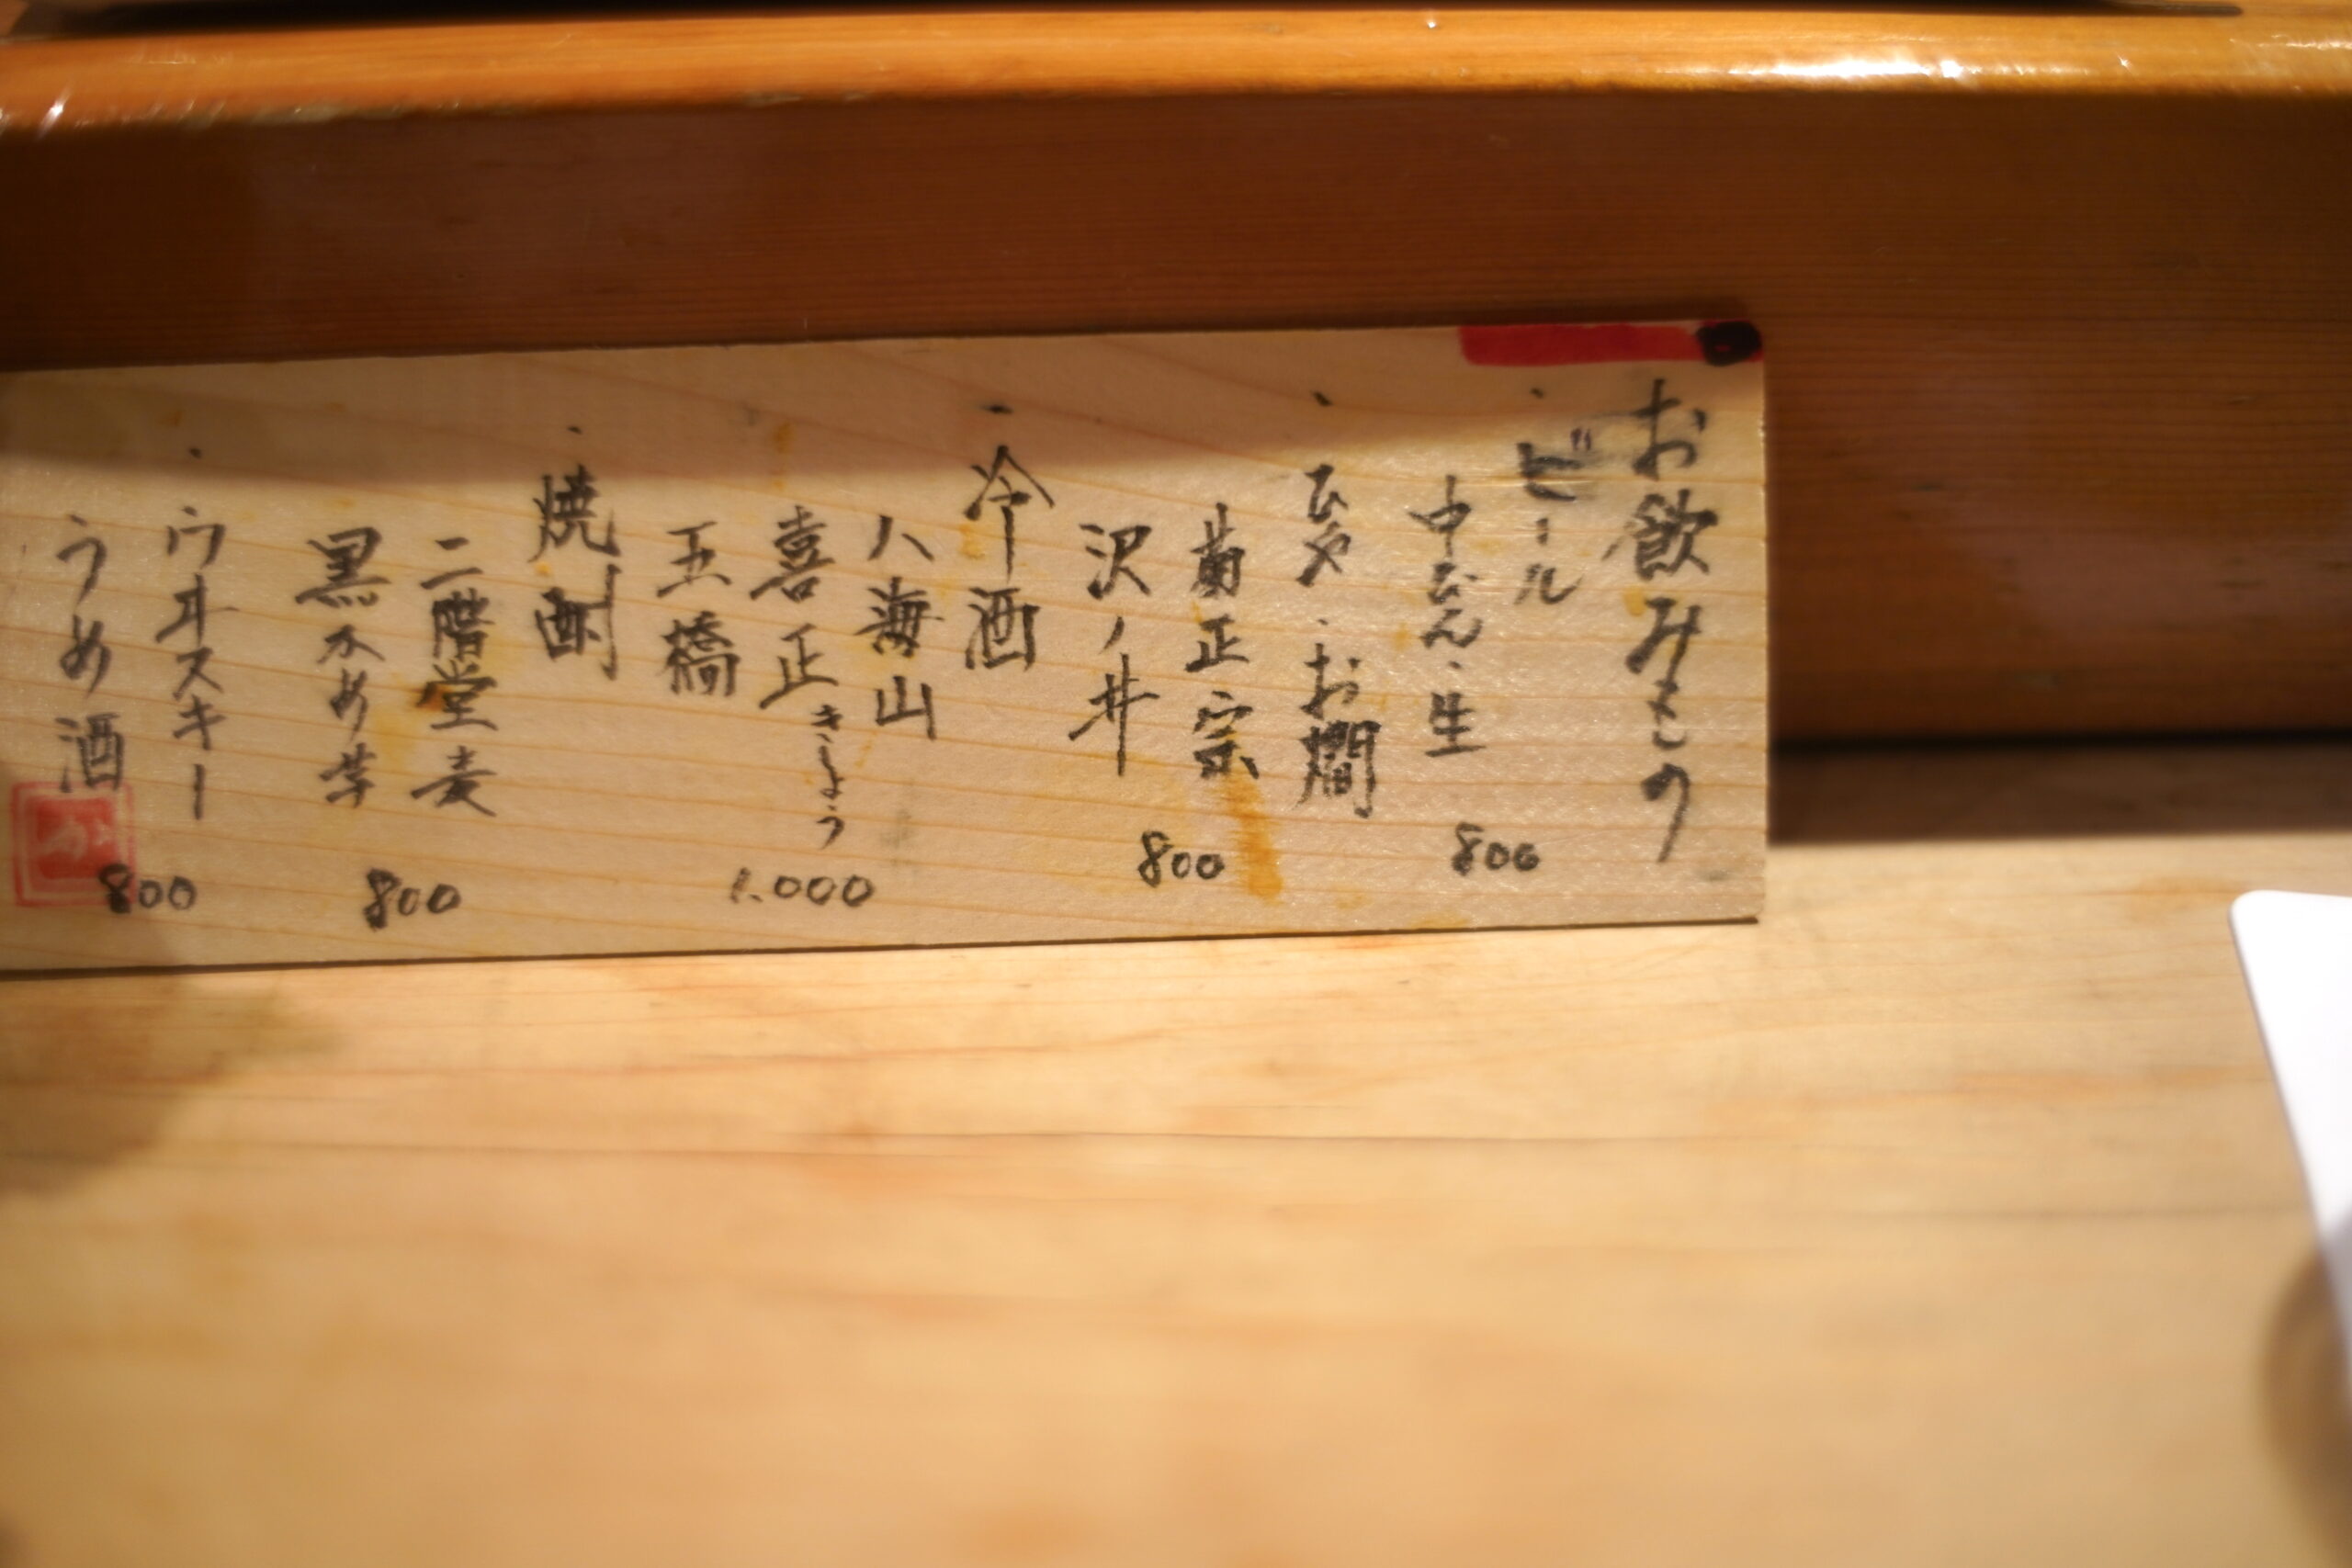 お飲みもの
・ビール
中びん・生
800
・ひや・お燗
菊正宗
沢ノ井
800
・冷酒
八海山
喜正きしょう
五橋
1.000
・焼酎
二階堂麦
黒かめ芋
800
・ウヰスキー
うめ酒
800
か